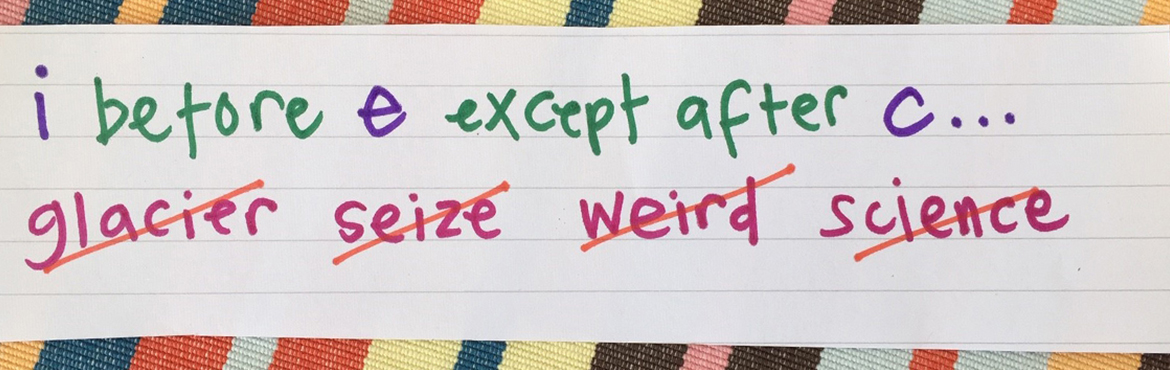 i before e except after c...
glacier seize weird science